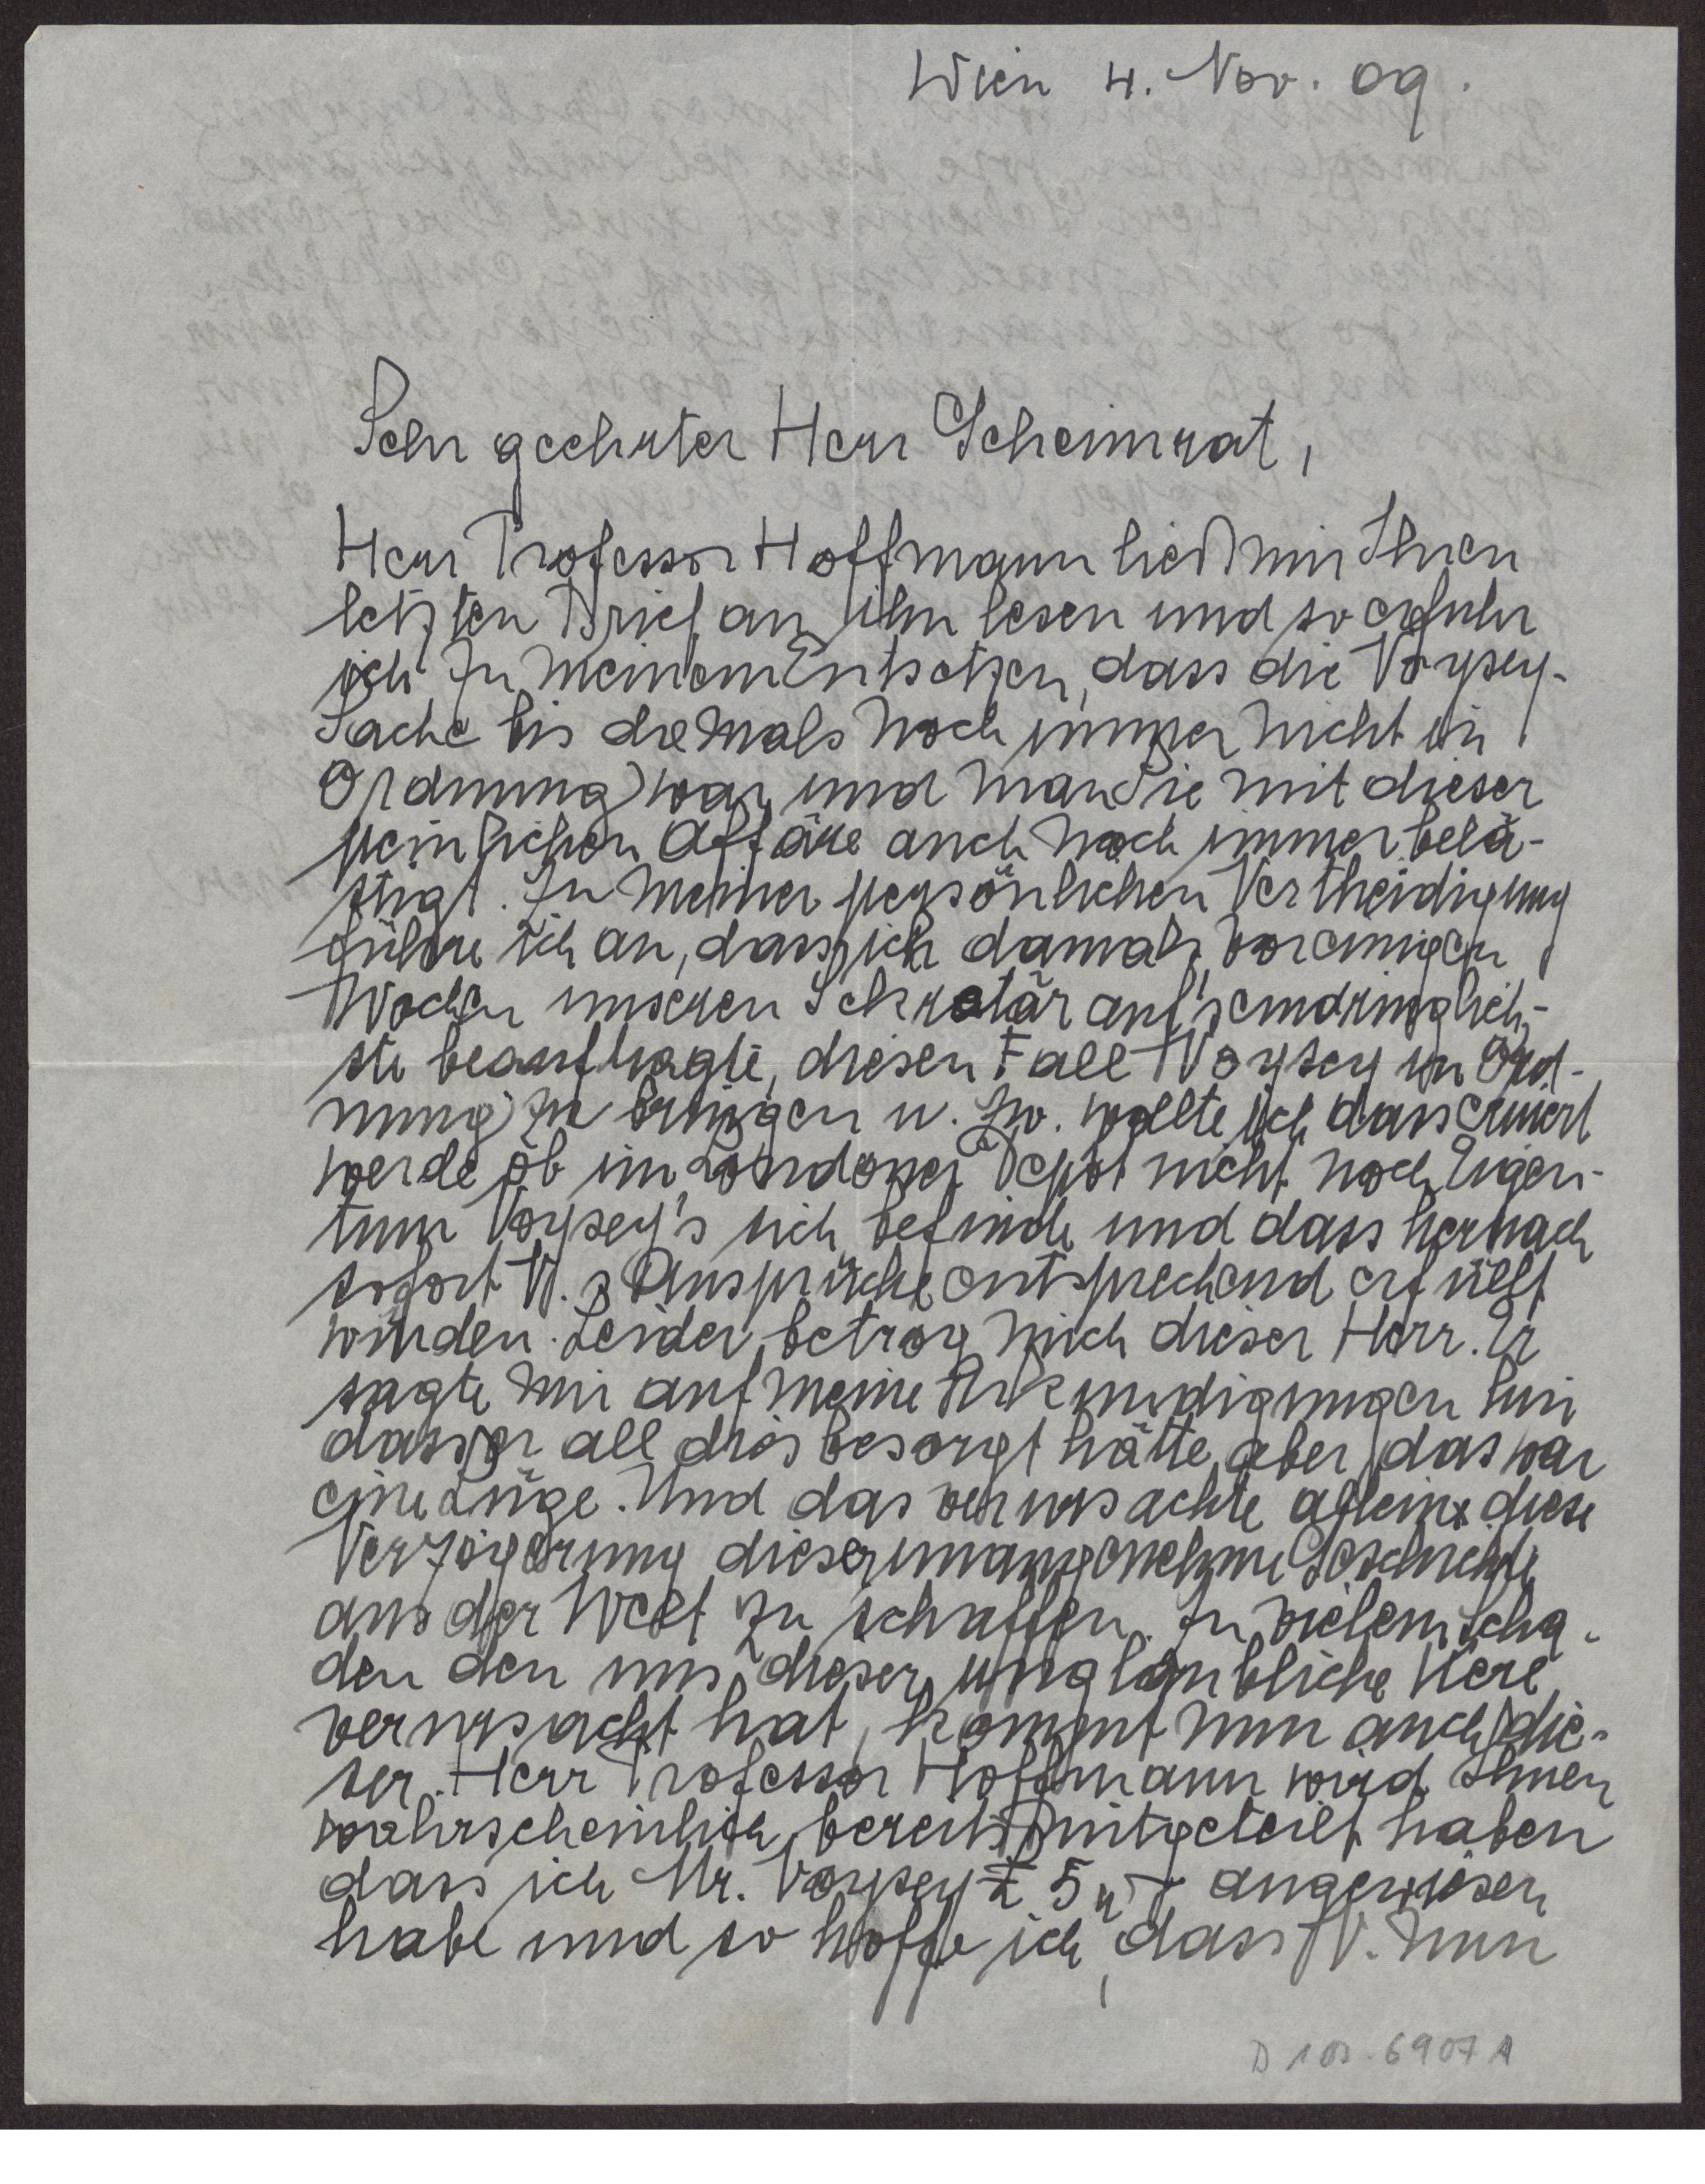 Wien 4. Nov. 09.
Sehr geehrter Herr Geheimrat,
Herr Professor Hoffmann ließ mir Ihren
letzten Brief an ihn lesen und so erfuhr
ich zu meinem Entsetzen, dass die Voysey-
Sache bis damals noch immer nicht in
Ordnung war und man Sie mit dieser
peinlichen Affäre auch noch immer belä-
stigt. Zu meiner persönlichen Vertheidigung
führe ich an, dass ich damals vor einigen
Wochen unseren Sekretär auf's eindringlich-
ste beauftragte, diesen Fall Voysey in Ord-
nung zu bringen u. zw. wollte ich dass eruiert
werde ob im Londoner Depot nicht noch Eigen-
tum Voysey's sich befinde und dass hernach
sofort V.s Ansprüche entsprechend erfüllt
würden. Leider betrog mich dieser Herr. Er
sagte mir auf meine Erkundigungen hin
dass er all dies besorgt hätte, aber das war
eine Lüge. Und das verursachte allein diese
Verzögerung diese unangenehme Geschichte
aus der Welt zu schaffen. Zu vielem Scha-
den den uns dieser unglaubliche Kerl
verursacht hat, kommt nun auch die-
ser. Herr Professor Hoffmann wird Ihnen
wahrscheinlich bereits mitgeteilt haben
dass ich Mr. Voysey £ 5 angewiesen
habe und so hoffe ich, dass V. nun
D 102.6907 A